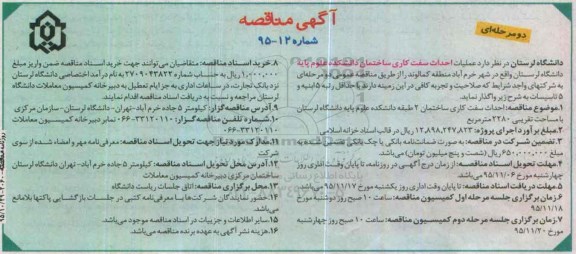 آگهی مناقصه
شماره ۱۲-۹۵
دو مرحله‌ای
دانشگاه لرستان در نظر دارد عملیات احداث سفت کاری ساختمان دانشکده علوم پایه
دانشگاه لرستان واقع در شهر خرم آباد منطقه کمالوند را از طریق مناقصه عمومی دو مرحله‌ای
به شرکتهای واجد شرایط که صلاحیت و تجربه کافی در این زمینه دارند با حداقل رتبه ۵ ابنیه و
۵ تاسیسات به شرح زیر واگذار نماید.
۱.موضوع مناقصه: احداث سفت کاری ساختمان ۲ طبقه دانشکده علوم پایه دانشگاه لرستان
با مساحت تقریبی ۲۲۸۰ مترمربع
۲.مبلغ برآورد اجرای پروژه: ۱۲,۸۹۸,۲۴۷,۸۲۳ ریال در قالب اسناد خزانه اسلامی
۳.تضمین شرکت در مناقصه: به صورت ضمانتنامه بانکی یا چک بانکی
۶۵۰,۰۰۰,۰۰۰ ریال (شصت و پنج میلیون تومان) می‌باشد.
۴.مهلت تحویل اسناد مناقصه: از زمان درج آگهی در روزنامه، تا پایان وقت اداری روز
چهارشنبه مورخ ۹۵/۱۱/۰۶ می‌باشد.
۵.مهلت دریافت اسناد مناقصه: تا پایان وقت اداری روز یکشنبه مورخ ۹۵/۱۱/۱۷ می‌باشد
۶.زمان برگزاری جلسه مرحله اول کمیسیون مناقصه: ساعت ۱۰ صبح روز دوشنبه مورخ
۹۵/۱۱/۱۸
۷.زمان برگزاری جلسه مرحله دوم کمیسیون مناقصه: ساعت ۱۰ صبح روز چهارشنبه
مورخ ۹۵/۱۱/۲۰
۸.خرید اسناد مناقصه: متقاضیان می‌توانند جهت خرید اسناد مناقصه ضمن واریز مبلغ
۱,۰۰۰,۰۰۰ ریال به حساب شماره ۲۷۰۹۰۴۳۸۲۲ به نام درآمد اختصاصی دانشگاه لرستان
نزد بانک تجارت، در ساعات اداری به جز ایام تعطیل به دبیرخانه کمیسیون معاملات دانشگاه
لرستان مراجعه و نسبت به دریافت اسناد مناقصه اقدام نمایند.
۹.آدرس مناقصه گزار: کیلومتر ۵ جاده خرم آباد-تهران- دانشگاه لرستان- سازمان مرکزی
۱۰.شماره تلفن مناقصه گزار: ۳۳۱۲۰۱۱۰-۰۶۶ نمابر دبیرخانه کمیسیون معاملات
۳۳۱۲۰۱۱۰-۰۶۶
۱۱.مدارک مورد نیاز جهت تحویل اسناد مناقصه: معرفی نامه مهر و امضاء شده از سوی
شرکت
۱۲.آدرس محل تحویل اسناد مناقصه: کیلومتر ۵ جاده خرم آباد- تهران دانشگاه لرستان
ساختمان مرکزی دبیرخانه کمیسیون معاملات
۱۳.محل برگزاری مناقصه: اتاق جلسات ریاست دانشگاه
۱۴.حضور نمایندگان شرکت‌ها با معرفی نامه کتبی در جلسات بازگشایی پاکتها بلامانع
می‌باشد.
۱۵.سایر اطلاعات و جزییات در اسناد مناقصه موجود می‌باشد.
۱۶.هزینه نشر آگهی به عهده برنده مناقصه می‌باشد.